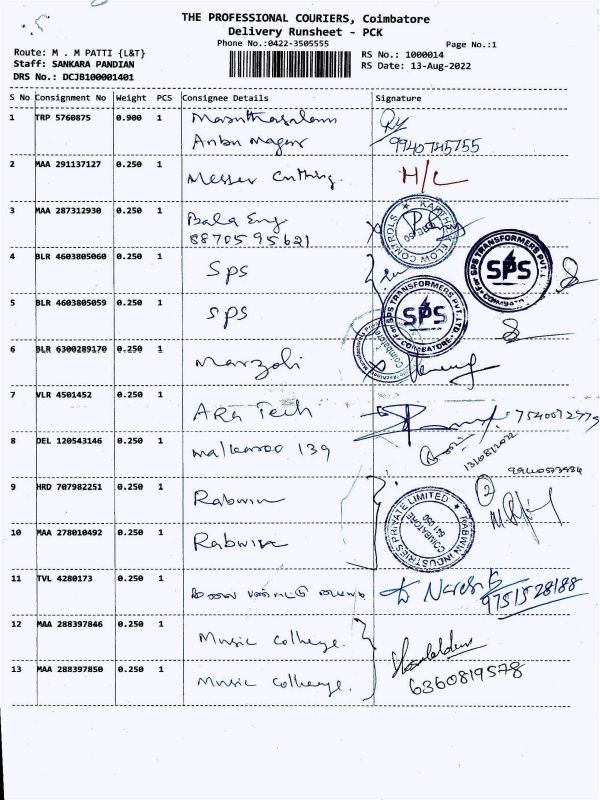 THE PROFESSIONAL COURIERS, Coimbatore
Delivery Runsheet - PCK
Phone No.:0422-3505555
Page No.:1
Route: M . M PATTI {L&T}
Staff: SANKARA PANDIAN
DRS No.: DCJB100001401
RS No.: 1000014
RS Date: 13-Aug-2022
S No Consignment No Weight PCS Consignee Details Signature
1 TRP 5760875 0.900 1
Anbu Nagar 9940745755
2 MAA 291137127 0.250 1 Messer Cutting. H/C
3 MAA 287312930 0.250 1 Bala Eng
8870595621
FLOW CONTROLS
4 BLR 4603805060 0.250 1 Sps
For SPS TRANSFORMERS PVT. LTD
SPS
COIMBATORE
5 BLR 4603805059 0.250 1 SPS
For SPS TRANSFORMERS PVT. LTD.
SPS
COIMBATORE
6 BLR 6300289170 0.250 1 Marzoli
Coimbatore
7 VLR 4501452 0.250 1 ARG Tech
8 DEL 120543146 0.250 1 139
13/08/2022
9 HRD 707982251 0.250 1 Rabwin
2
RABWIN INDUSTRIES PRIVATE LIMITED
COIMBATORE
641 050
10 MAA 278010492 0.250 1 Rabwin
11 TVL 4280173 0.250 1 Naresh
9751528188
12 MAA 288397846 0.250 1 Music college.
13 MAA 288397850 0.250 1 Music college.
6360819578